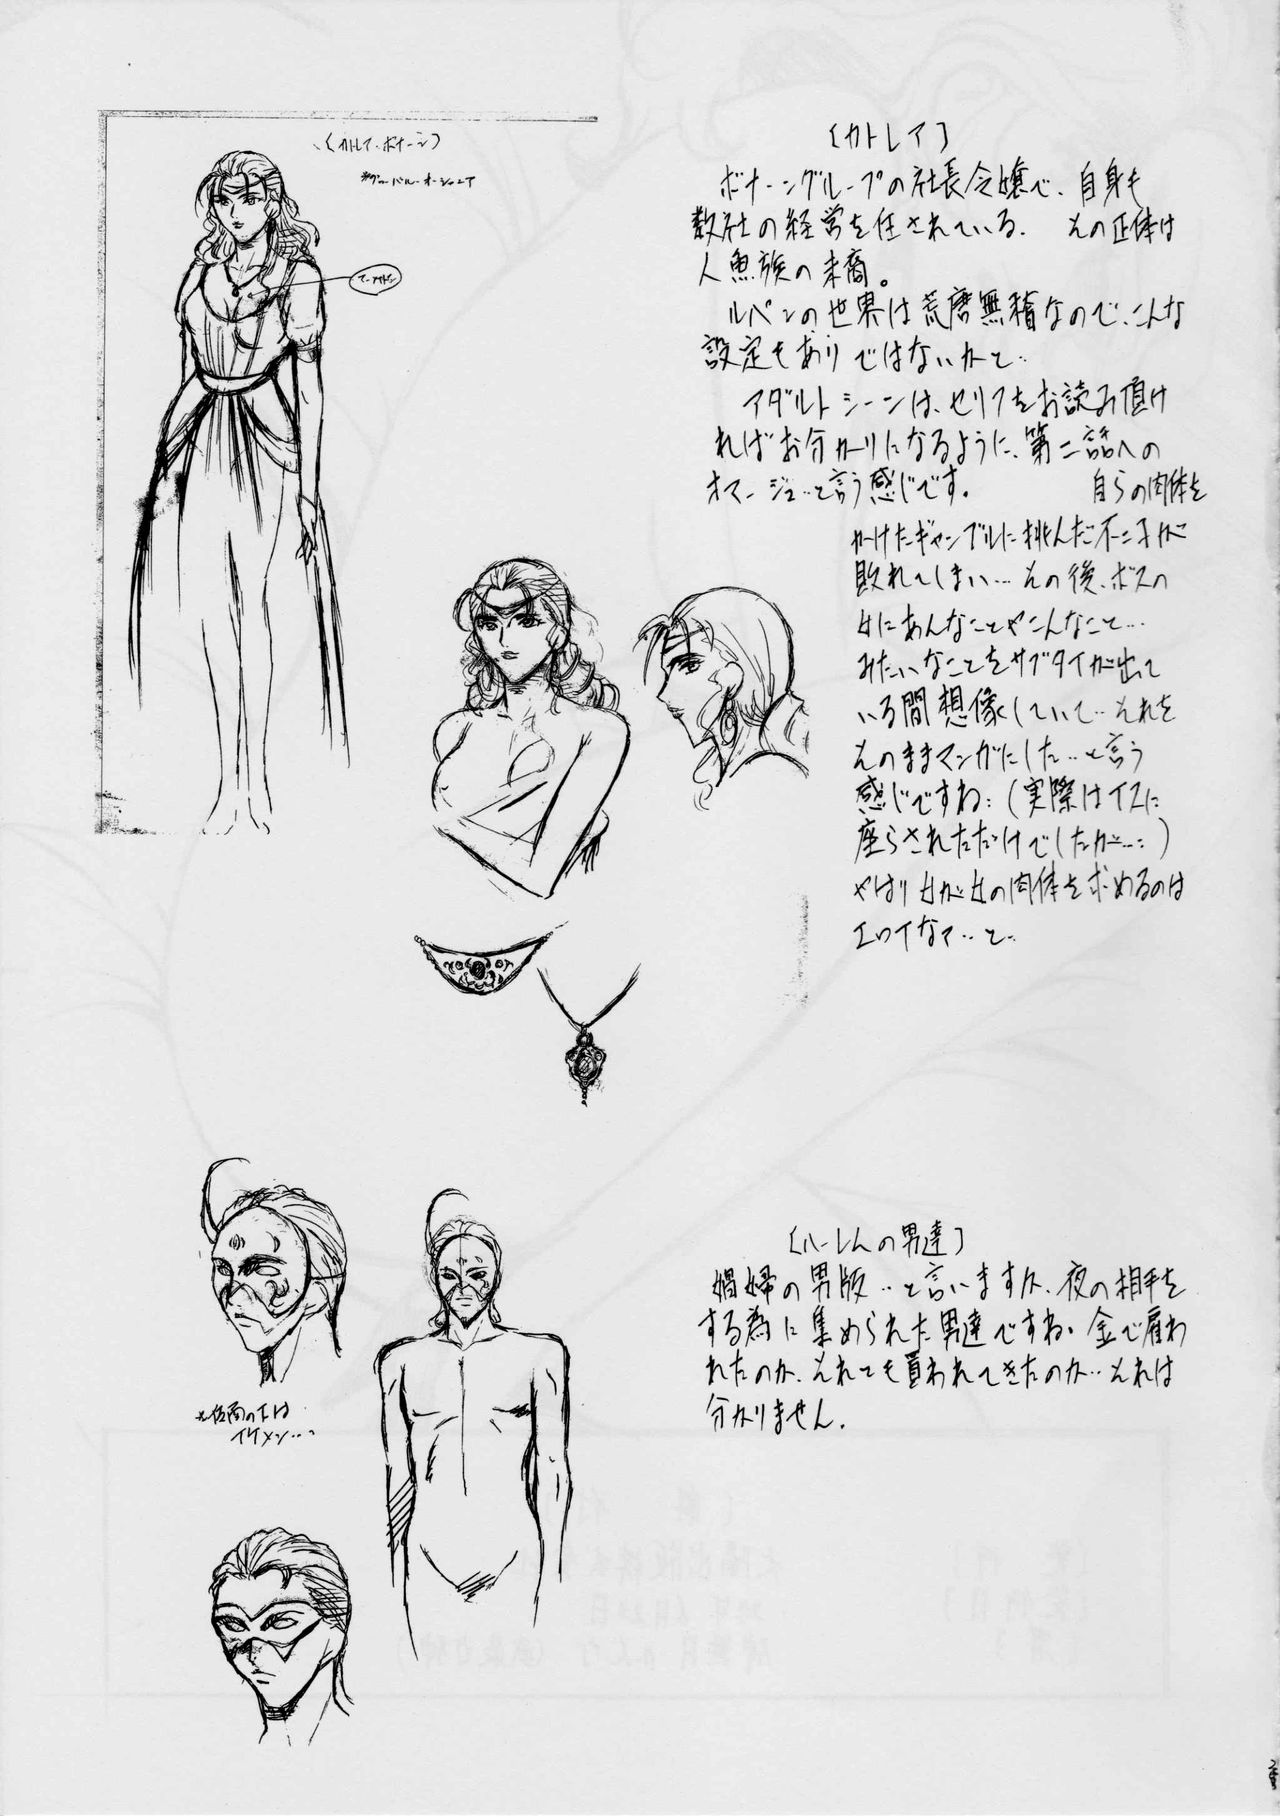 〔カトレア・ボナーン〕
〔カトレア〕
ボナーングループの社長令嬢で、自身も
数社の経営を任されている。 その正体は
人魚族の末裔。
ルパンの世界は荒唐無稽なので、こんな
設定もありではないかと‥
アダルトシーンは、セリフをお読み頂け
ればお分かりになるように、第二話への
オマージュ‥と言う感じです。 自らの肉体を
かけたギャンブルに挑んだ不二子が
敗れてしまい…その後、ボスの
女にあんなことやこんなこと…
みたいなことをサブタイが出て
いる間想像していて‥それを
そのままマンガにした‥と言う
感じですね;(実際はイスに
座らされただけでしたが…;)
やはり女が女の肉体を求めるのは
エロイなァ‥と‥
〔ハーレムの男達〕
娼婦の男版‥と言いますか、夜の相手を
する為に集められた男達ですね。金で雇わ
れたのか、それとも買われてきたのか‥それは
分かりません。
※仮面の下は
イケメン…?